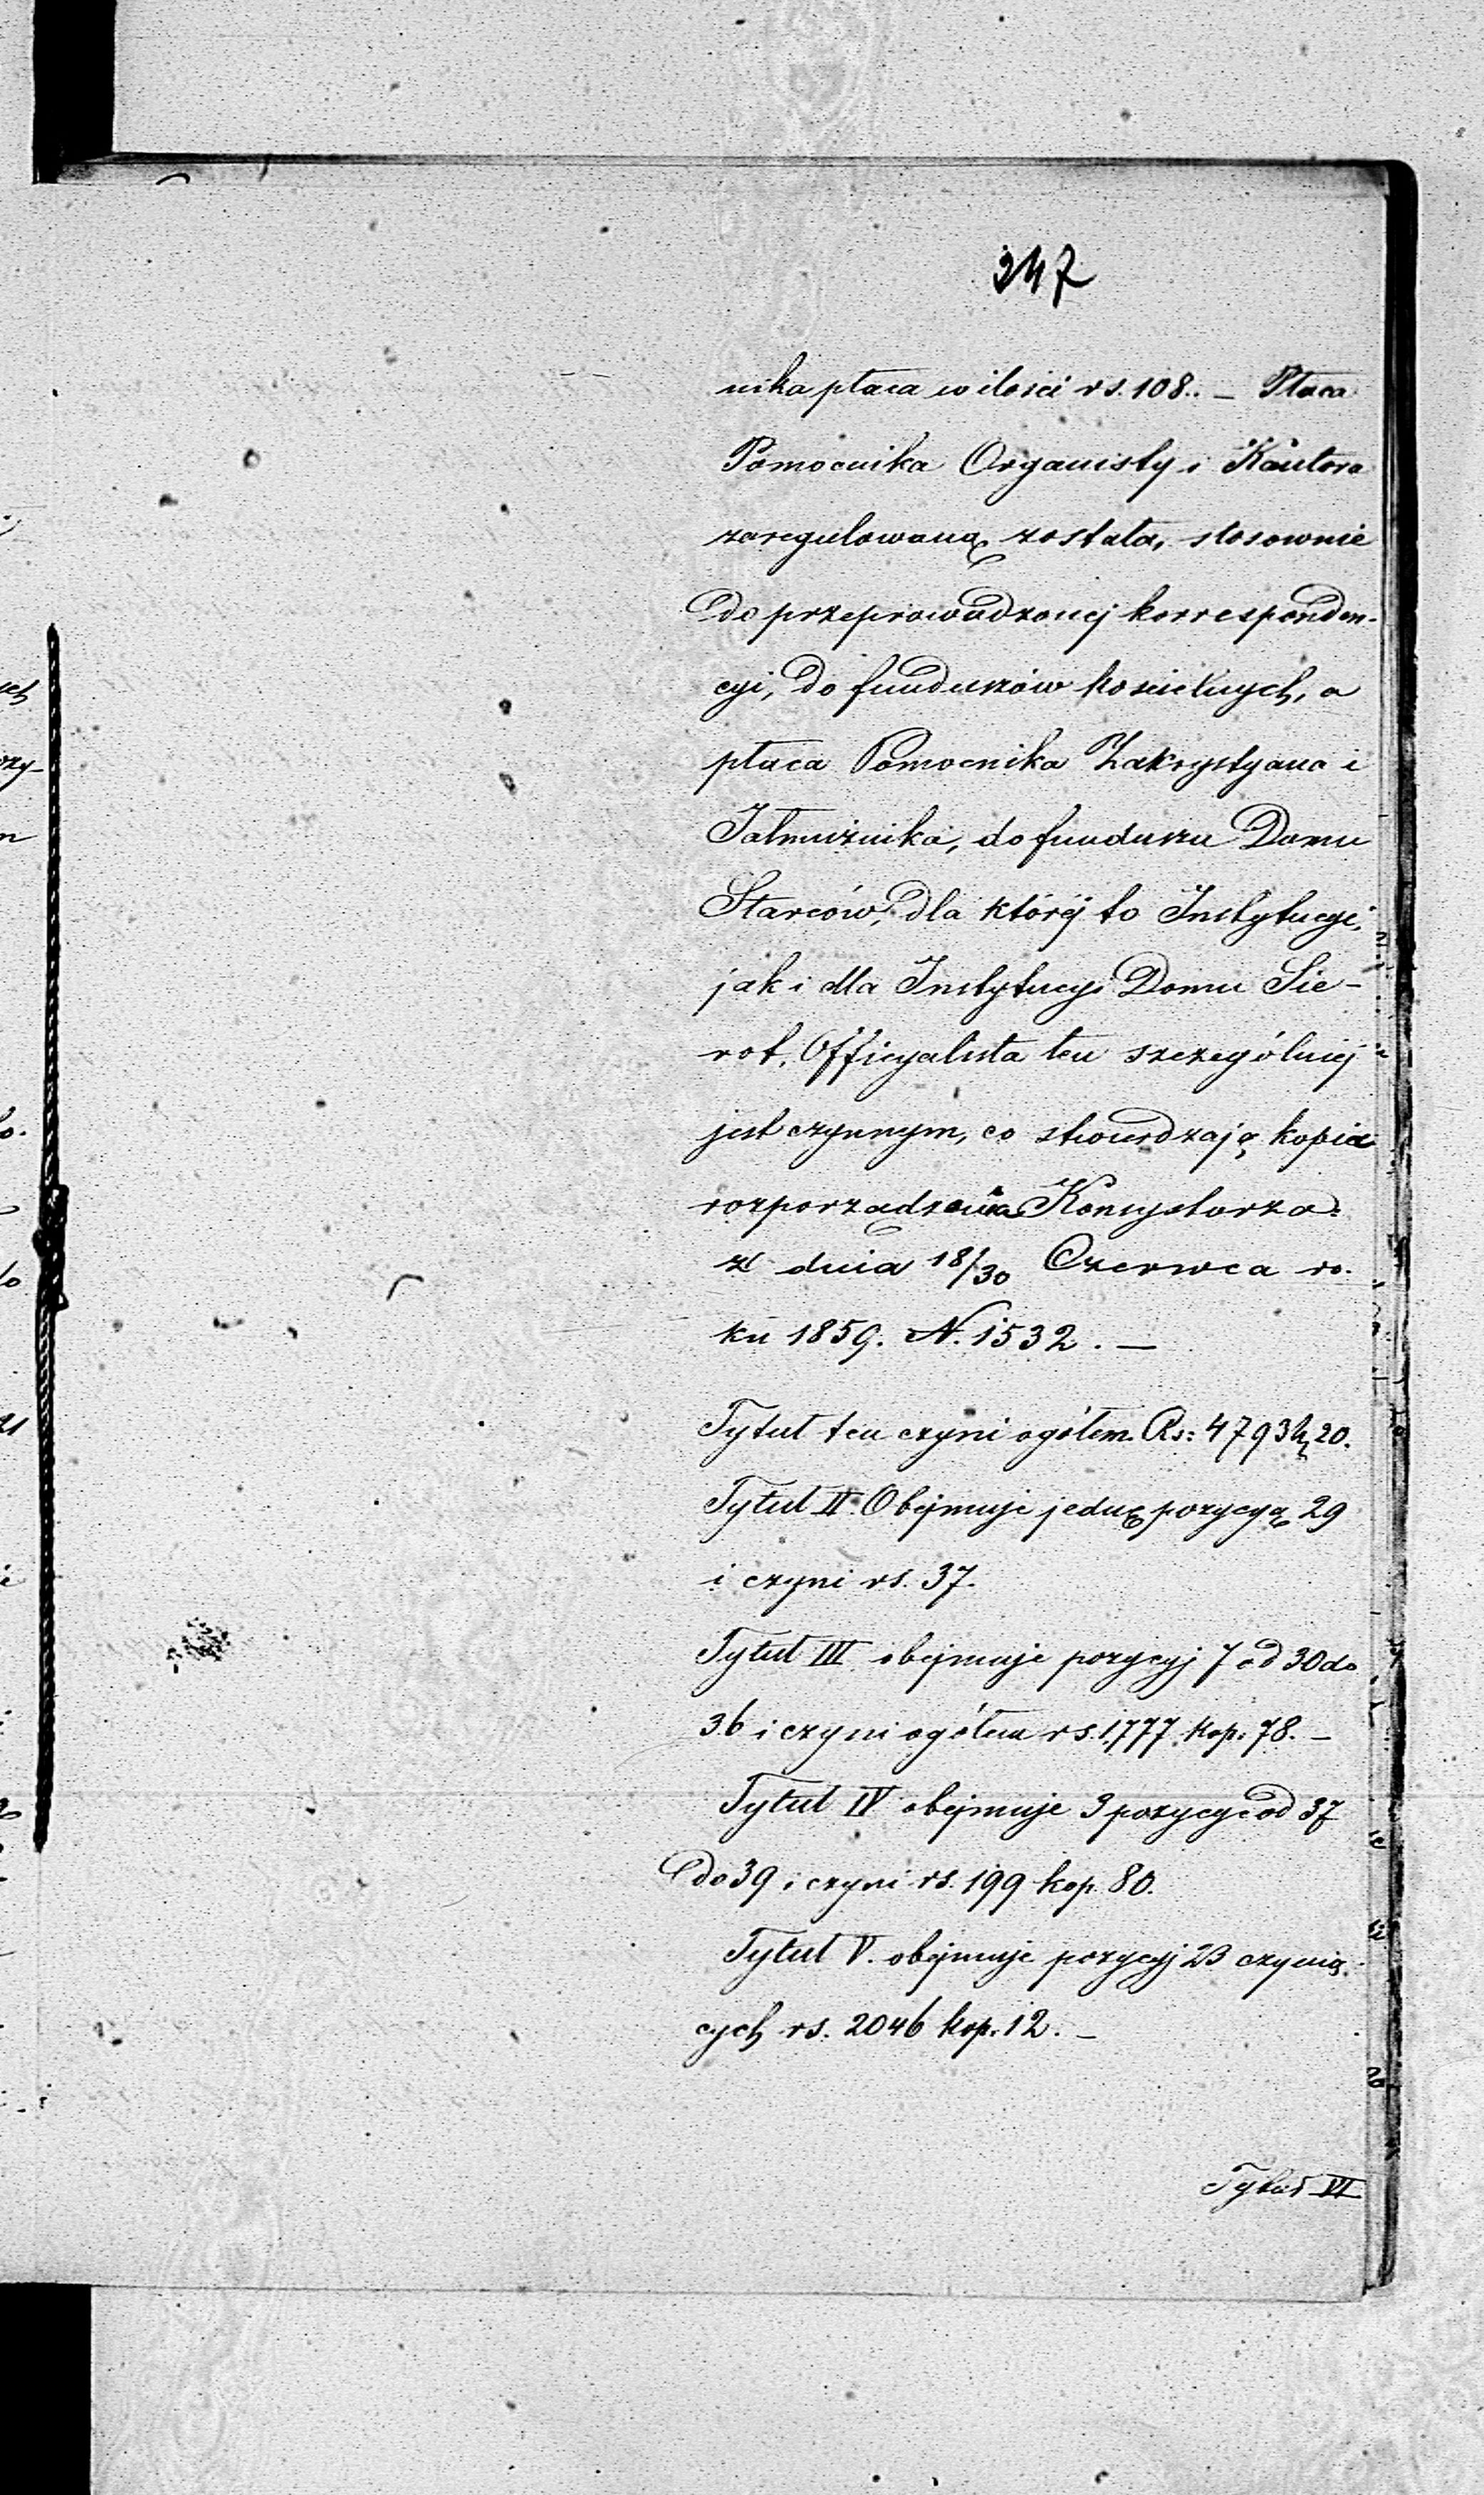 247
nika płaca w ilości rs. 108.. — Płaca
Pomocnika Organisty i Kantora
zaregulowaną została, stosownie
do przeprowadzonej korresponden-
cyi, do funduszów kościelnych, a
płaca Pomocnika Zakrystyana i
Jałmużnika, do funduszu Domu
Starców, dla którėj to Instytucyi,
jak i dla Instytucyi Domu Sie-
rot, Officyalista ten szczególniej
jest czynnym, co stwierdzają kopia
rozporządzenia Konsystorza
z dnia 18/30 Czerwca ro-
ku 1859. N. 1532. —
Tytuł ten czyni ogółem Rs: 4793 k 20.
Tytuł II. Obejmuje jednę pozycyą 29
i czyni rs. 37.
Tytuł III obejmuje pozycyj 7 od 30 do
36 i czyni ogółem rs. 1,777 kop. 78. —
Tytuł IV obejmuje 3 pozycye od 37
do 39 i czyni rs. 199 kop. 80.
Tytuł V. obejmuje pozycyj 23 czynią-
cych rs. 2046 kop. 12. —
Tytuł VI